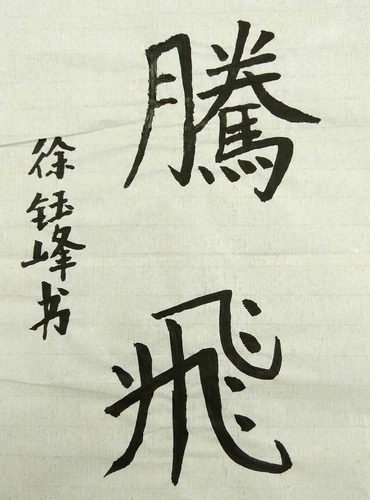 騰飛
徐钰峰书